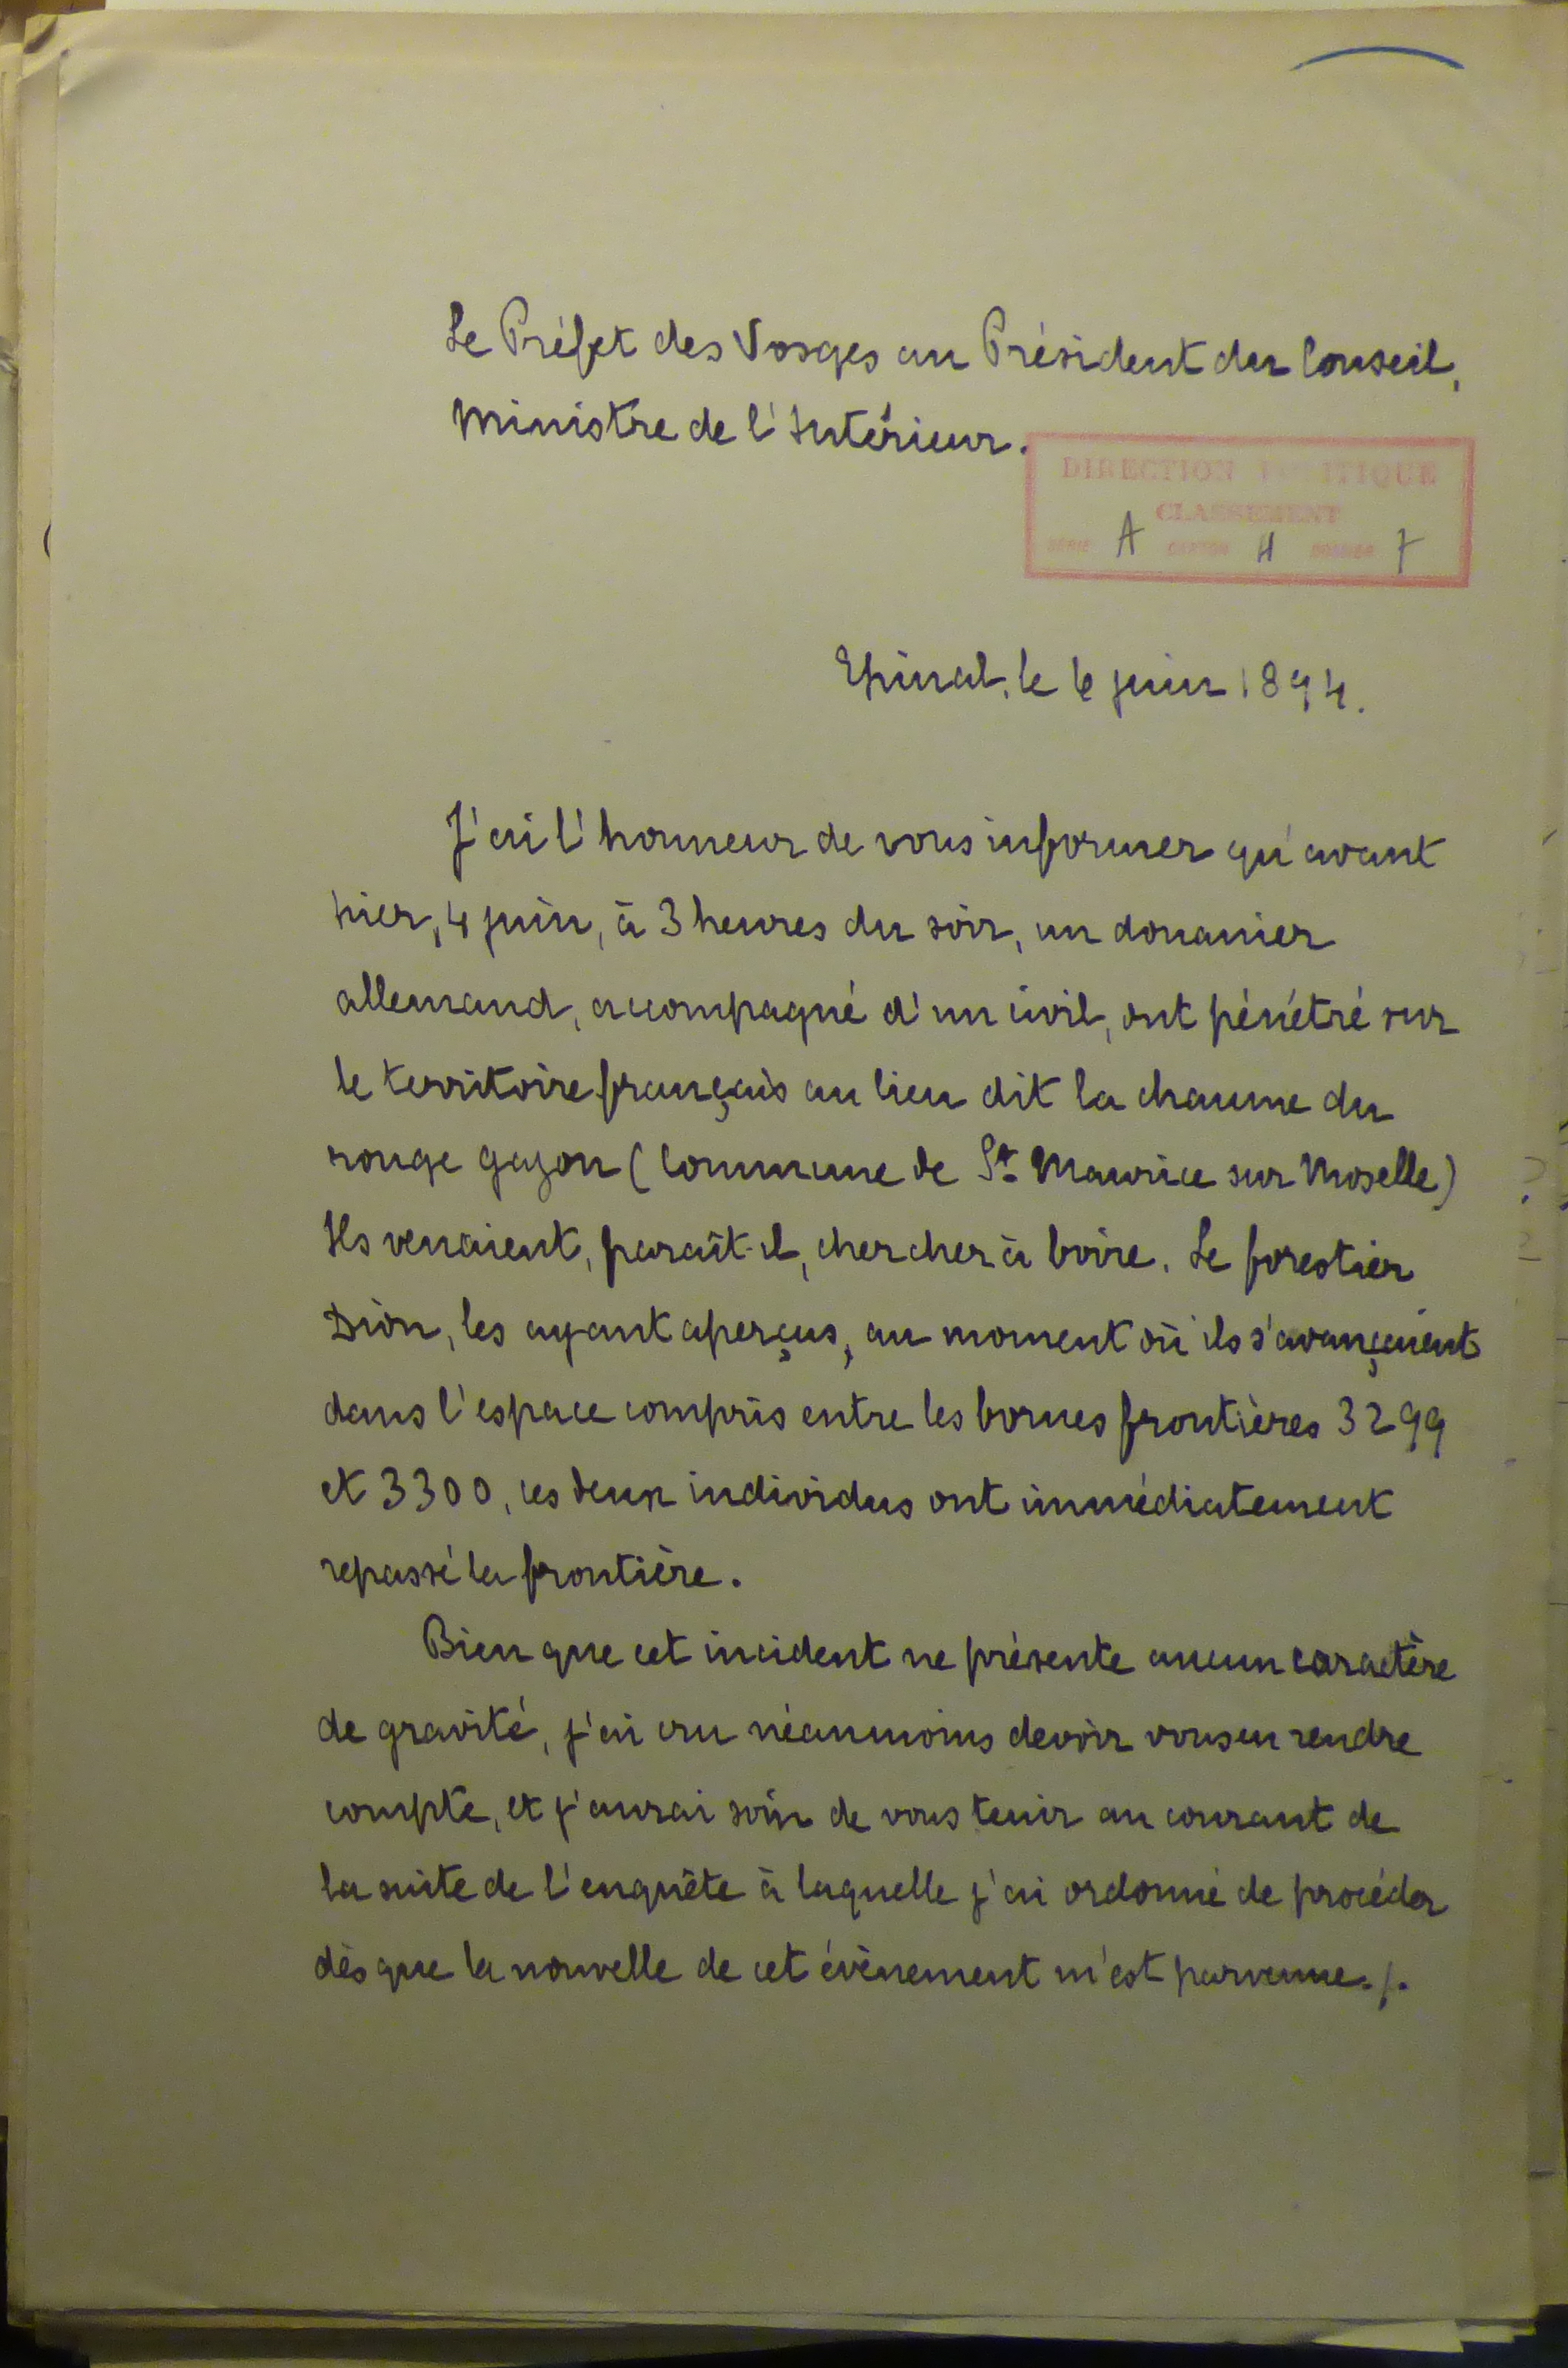 Le Préfet des Vosges au Président du Conseil,
Ministre de l'Intérieur.
DIRECTION POLITIQUE
CLASSEMENT
SÉRIE A CARTON 11 DOSSIER 7
Epinal, le 6 juin 1894.
J'ai l'honneur de vous informer qu'avant
hier, 4 juin, à 3 heures du soir, un douanier
allemand, accompagné d'un civil, ont pénétré sur
le territoire français au lieu dit la chaume du
rouge gazon (Commune de St Maurice sur Moselle)
Ils venaient, paraît-il, chercher à boire. Le forestier
Dion, les ayant aperçus, au moment où ils s'avançaient
dans l'espace compris entre les bornes frontières 3299
et 3300, ces deux individus ont immédiatement
repassé la frontière.
Bien que cet incident ne présente aucun caractère
de gravité, j'ai cru néanmoins devoir vous en rendre
compte, et j'aurai soin de vous tenir au courant de
la suite de l'enquête à laquelle j'ai ordonné de procéder
dès que la nouvelle de cet évènement m'est parvenue./.